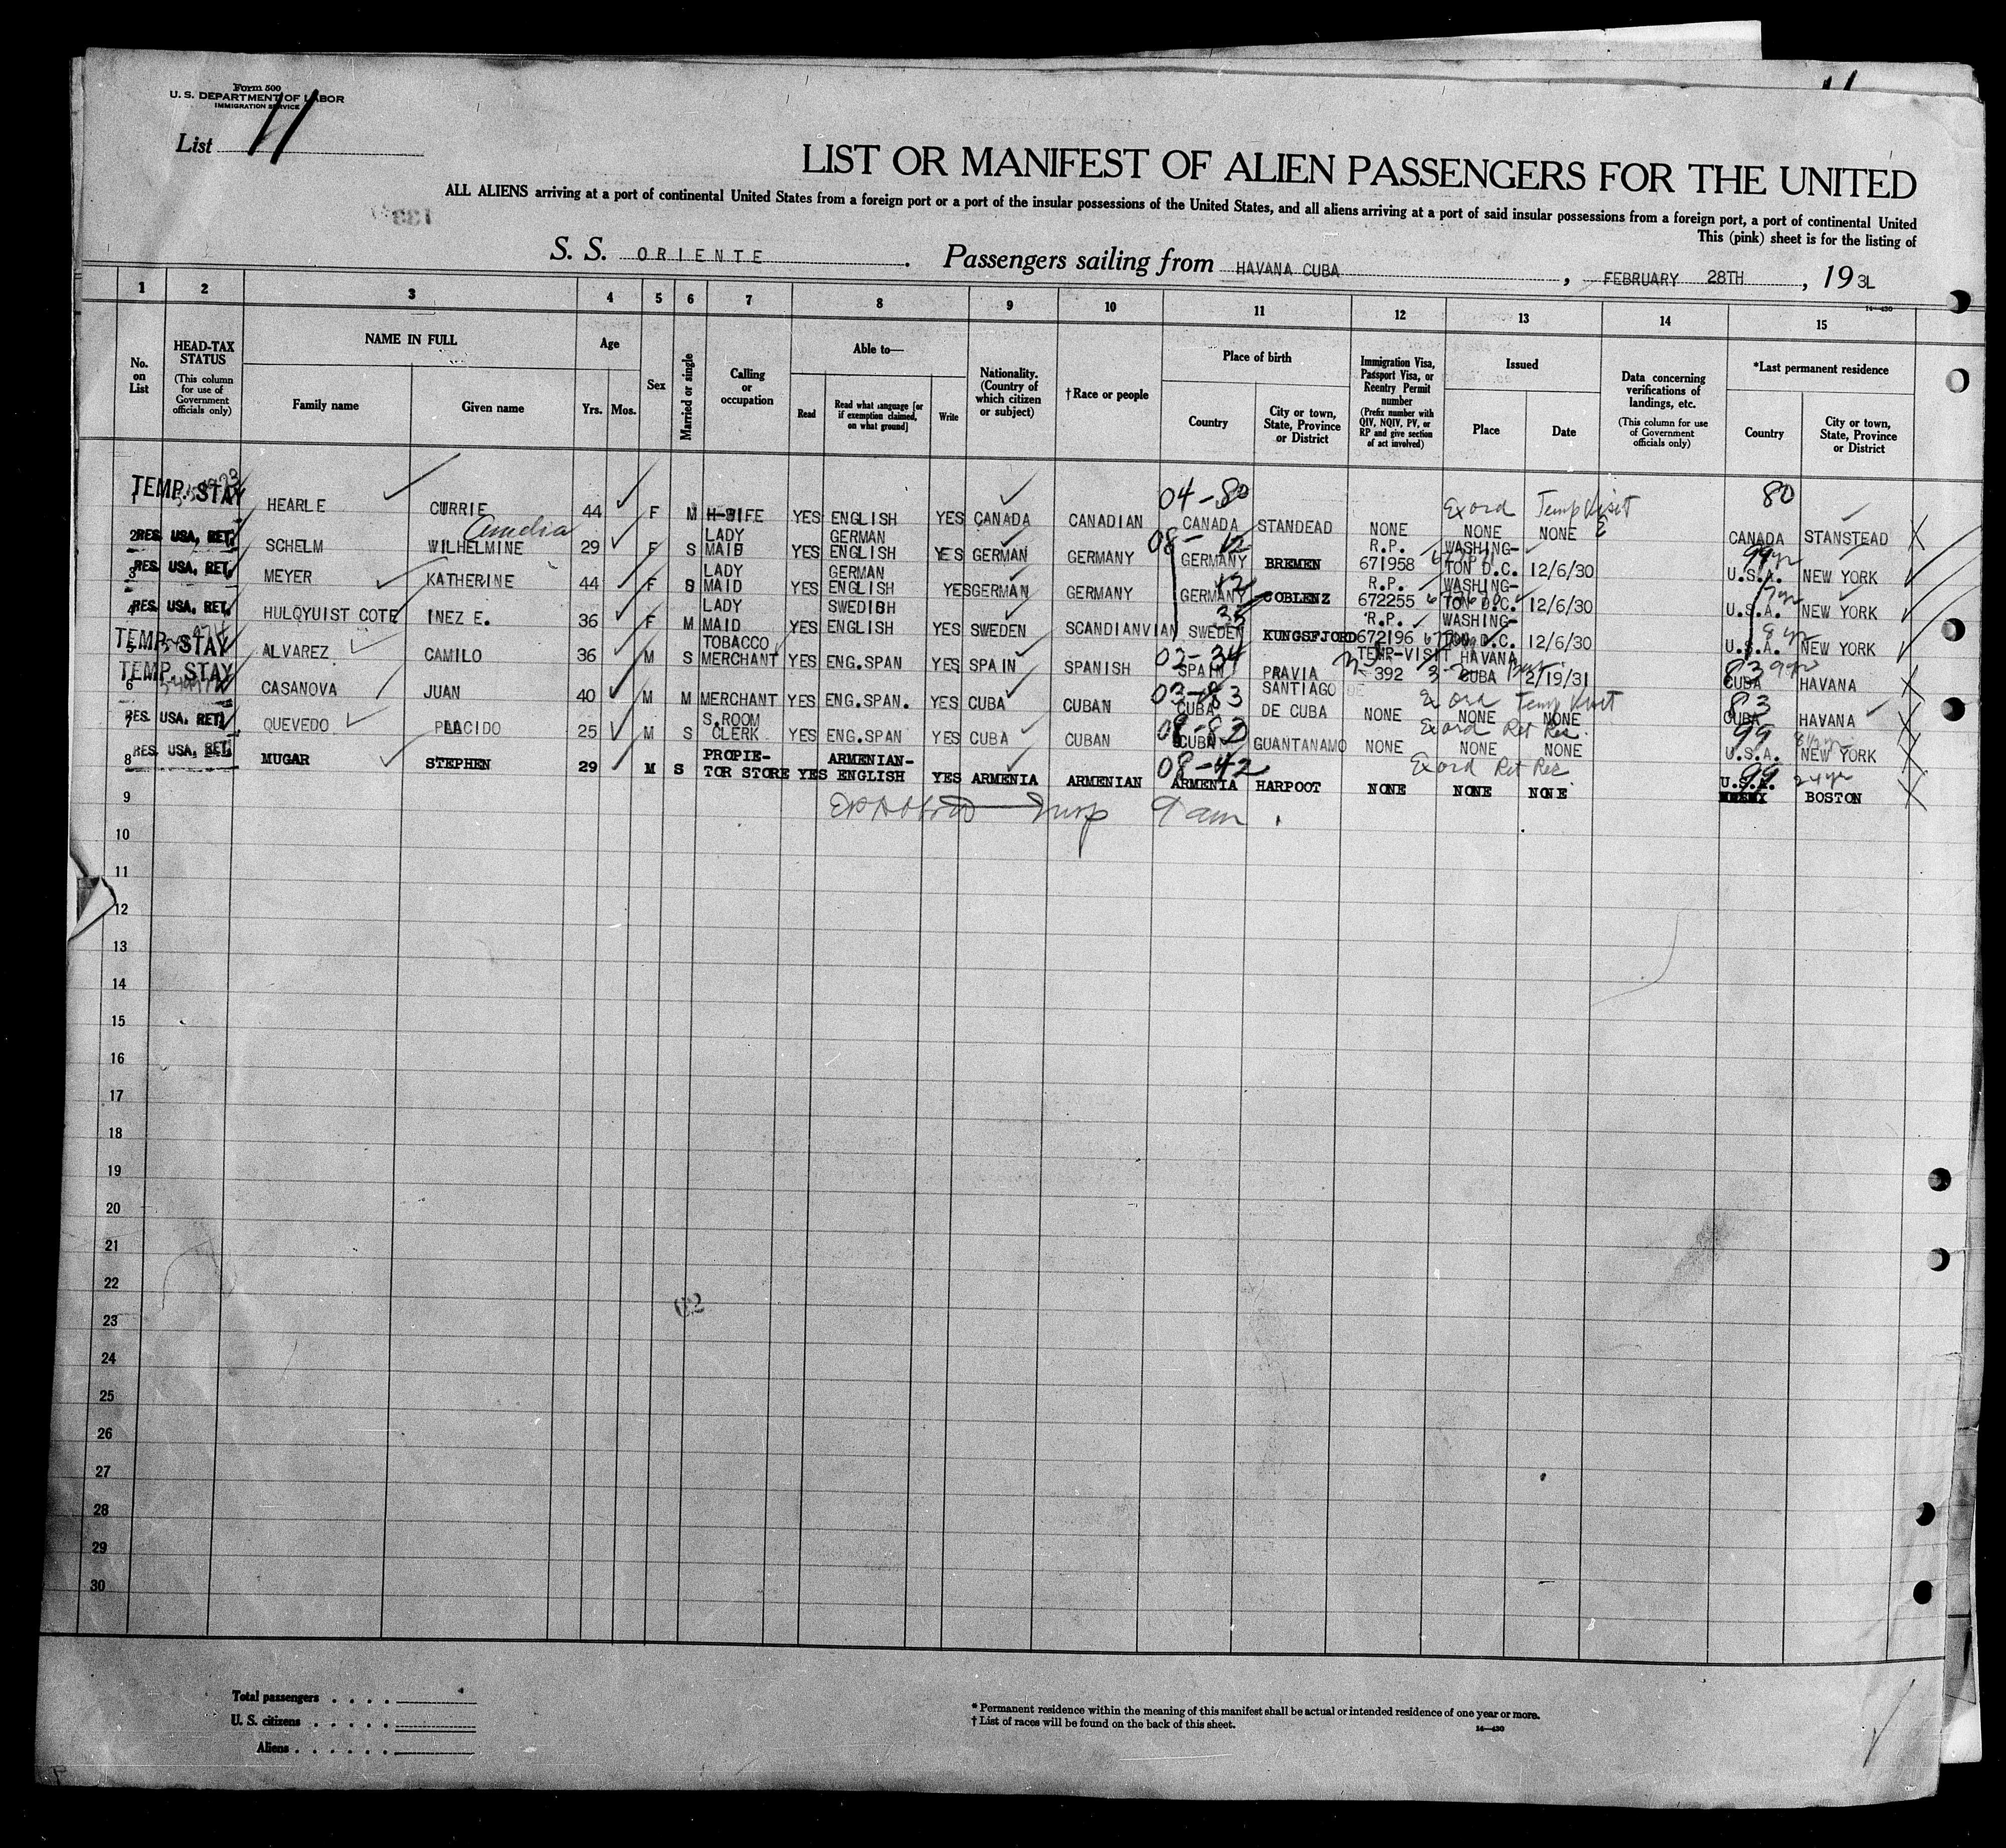 Form 500
U. S. DEPARTMENT OF LABOR
IMMIGRATION SERVICE
List 11
LIST OR MANIFEST OF ALIEN PASSENGERS FOR THE UNITED
ALL ALIENS arriving at a port of continental United States from a foreign port or a port of the insular possessions of the United States, and all aliens arriving at a port of said insular possessions from a foreign port, a port of continental United
This (pink) sheet is for the listing of
S. S. ORIENTE . Passengers sailing from HAVANA CUBA , FEBRUARY 28TH , 193L
1 2 3 4 5 6 7 8 9 10 11 12 13 14 15
14-430
No. on List
HEAD-TAX STATUS (This column for use of Government officials only)
NAME IN FULL
Family name Given name
Age
Yrs. Mos.
Sex
Married or single
Calling or occupation
Able to—
Read Read what language [or if exemption claimed, on what ground] Write
Nationality. (Country of which citizen or subject)
†Race or people
Place of birth
Country City or town, State, Province or District
Immigration Visa, Passport Visa, or Reentry Permit number (Prefix number with QIV, NQIV, PV, or RP and give section of act involved)
Issued
Place Date
Data concerning verifications of landings, etc. (This column for use of Government officials only)
*Last permanent residence
Country City or town, State, Province or District
04-80 Exord Temp Visit 80
1 TEMP. STAY HEARLE CURRIE 44 F M H-WIFE YES ENGLISH YES CANADA CANADIAN CANADA STANDEAD NONE NONE NONE CANADA STANSTEAD
Amelia
2 RES. USA, RET. SCHELM WILHELMINE 29 F S LADY MAID YES GERMAN ENGLISH YES GERMAN GERMANY 08-12 GERMANY BREMEN R.P. 671958 WASHING-TON D.C. 12/6/30 99 U.S.A. NEW YORK
3 RES. USA, RET. MEYER KATHERINE 44 F S LADY MAID YES GERMAN ENGLISH YES GERMAN GERMANY 12 GERMANY COBLENZ R.P. 672255 WASHING-TON D.C. 12/6/30 7yr U.S.A. NEW YORK
4 RES. USA, RET. HULQYUIST COTE INEZ E. 36 F M LADY MAID YES SWEDISH ENGLISH YES SWEDEN SCANDIANVIAN 35 SWEDEN KUNGSFJORD R.P. 672196 WASHING-TON D.C. 12/6/30 8 yr U.S.A. NEW YORK
5 TEMP. STAY ALVAREZ CAMILO 36 M S TOBACCO MERCHANT YES ENG.SPAN YES SPAIN SPANISH 02-34 SPAIN PRAVIA TEMP-VISIT 392 HAVANA CUBA 2/19/31 83 CUBA HAVANA
6 TEMP. STAY CASANOVA JUAN 40 M M MERCHANT YES ENG.SPAN. YES CUBA CUBAN 03-83 CUBA SANTIAGO DE CUBA NONE NONE NONE Exord Temp Visit 83 CUBA HAVANA
7 RES. USA, RET. QUEVEDO PLACIDO 25 M S S.ROOM CLERK YES ENG.SPAN YES CUBA CUBAN 08-83 CUBA GUANTANAMO NONE NONE NONE Exord Ret Res. 99 U.S.A. NEW YORK
8 RES. USA, RET. MUGAR STEPHEN 29 M S PROPIE-TOR STORE YES ARMENIAN-ENGLISH YES ARMENIA ARMENIAN 08-42 ARMENIA HARPOOT NONE NONE NONE Exord Ret Res 99 24 yr U.S.A. BOSTON
9
10
11
12
13
14
15
16
17
18
19
20
21
22
23
24
25
26
27
28
29
30
Total passengers . . . .
U. S. citizens . . . . .
Aliens . . . . . .
* Permanent residence within the meaning of this manifest shall be actual or intended residence of one year or more.
† List of races will be found on the back of this sheet.
14-430